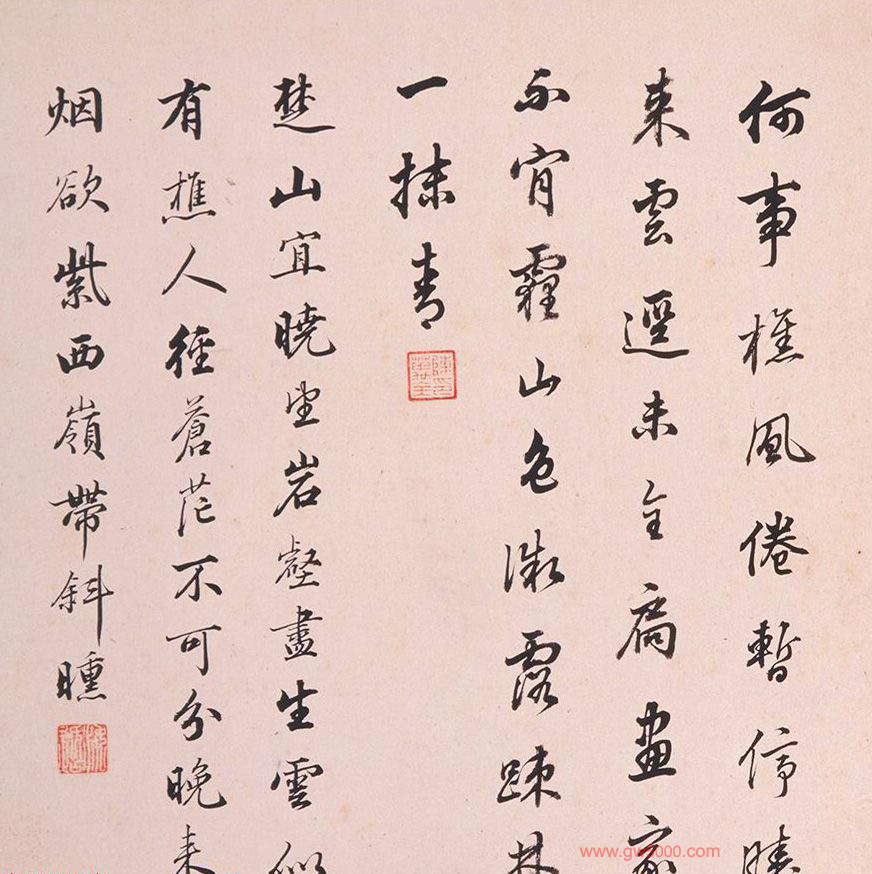 何事樵風倦暫停晴
来雲逕未全扃畫家
不肎霾山色微露疎林
一抹青
楚山宜曉望岩壑盡生雲似
有樵人徑蒼茫不可分晚来
烟欲紫西嶺帶斜曛
www.gw5000.com